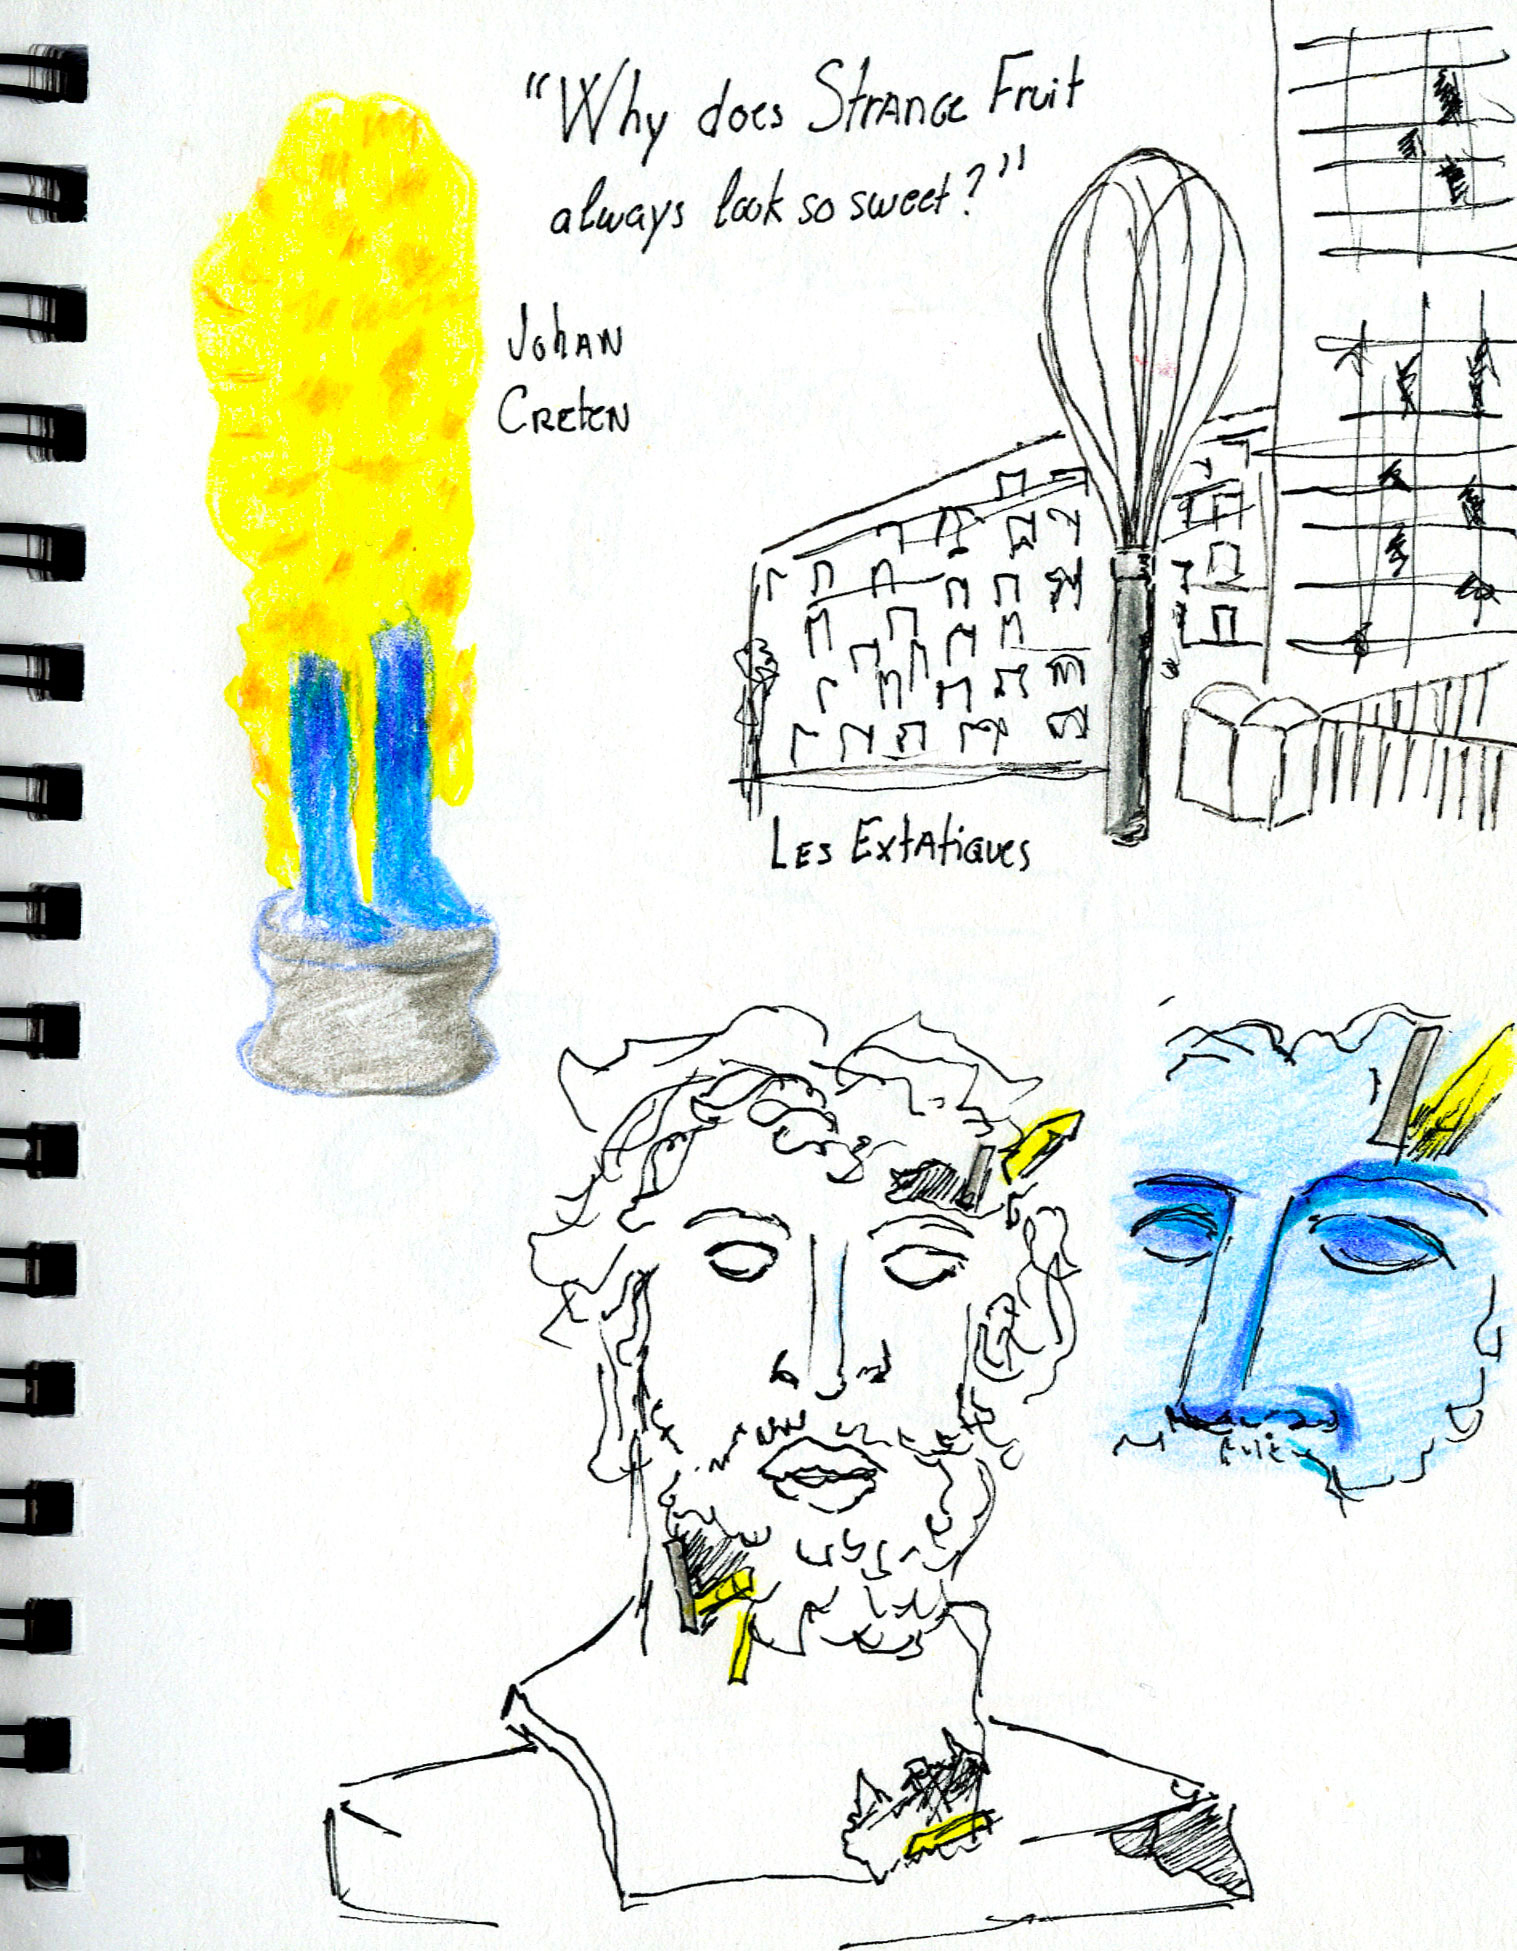 "Why does Strange Fruit
always look so sweet?"
Johan
Creten
Les Extatiques